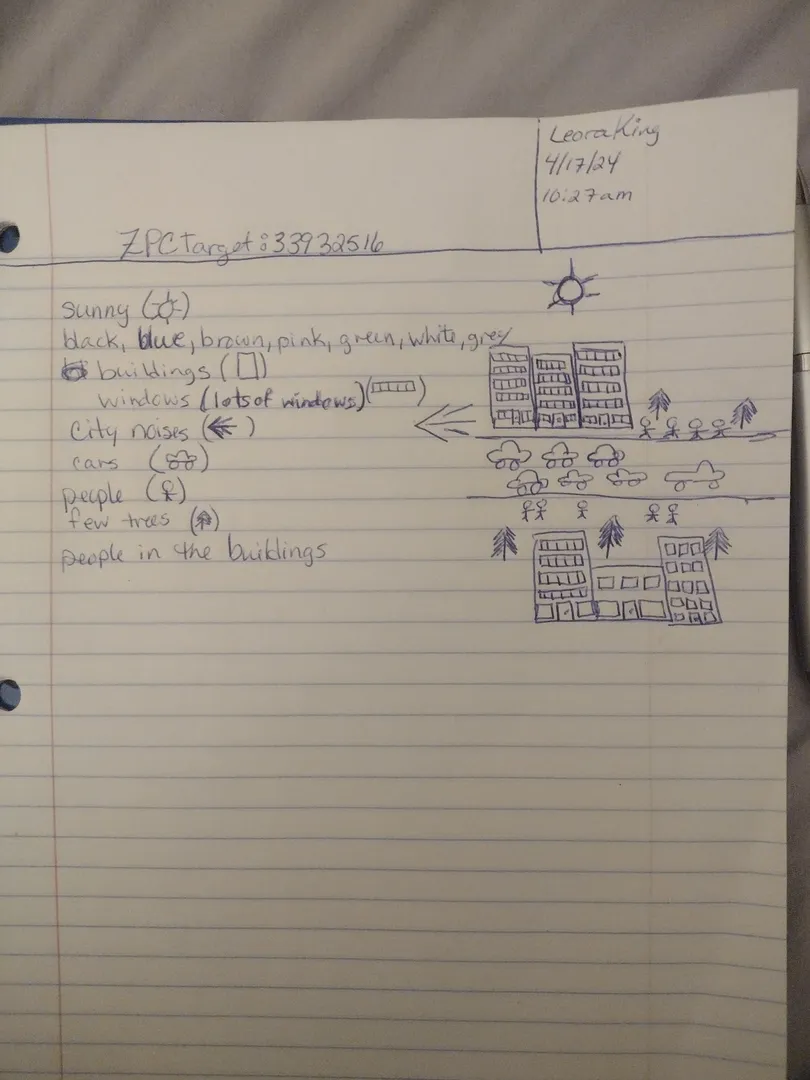 Leora King
4/17/24
10:27am
ZPC Target: 33932516
sunny ( )
black, blue, brown, pink, green, white, grey
buildings ( )
windows (lots of windows) ( )
City noises ( )
cars ( )
people ( )
few trees ( )
people in the buildings